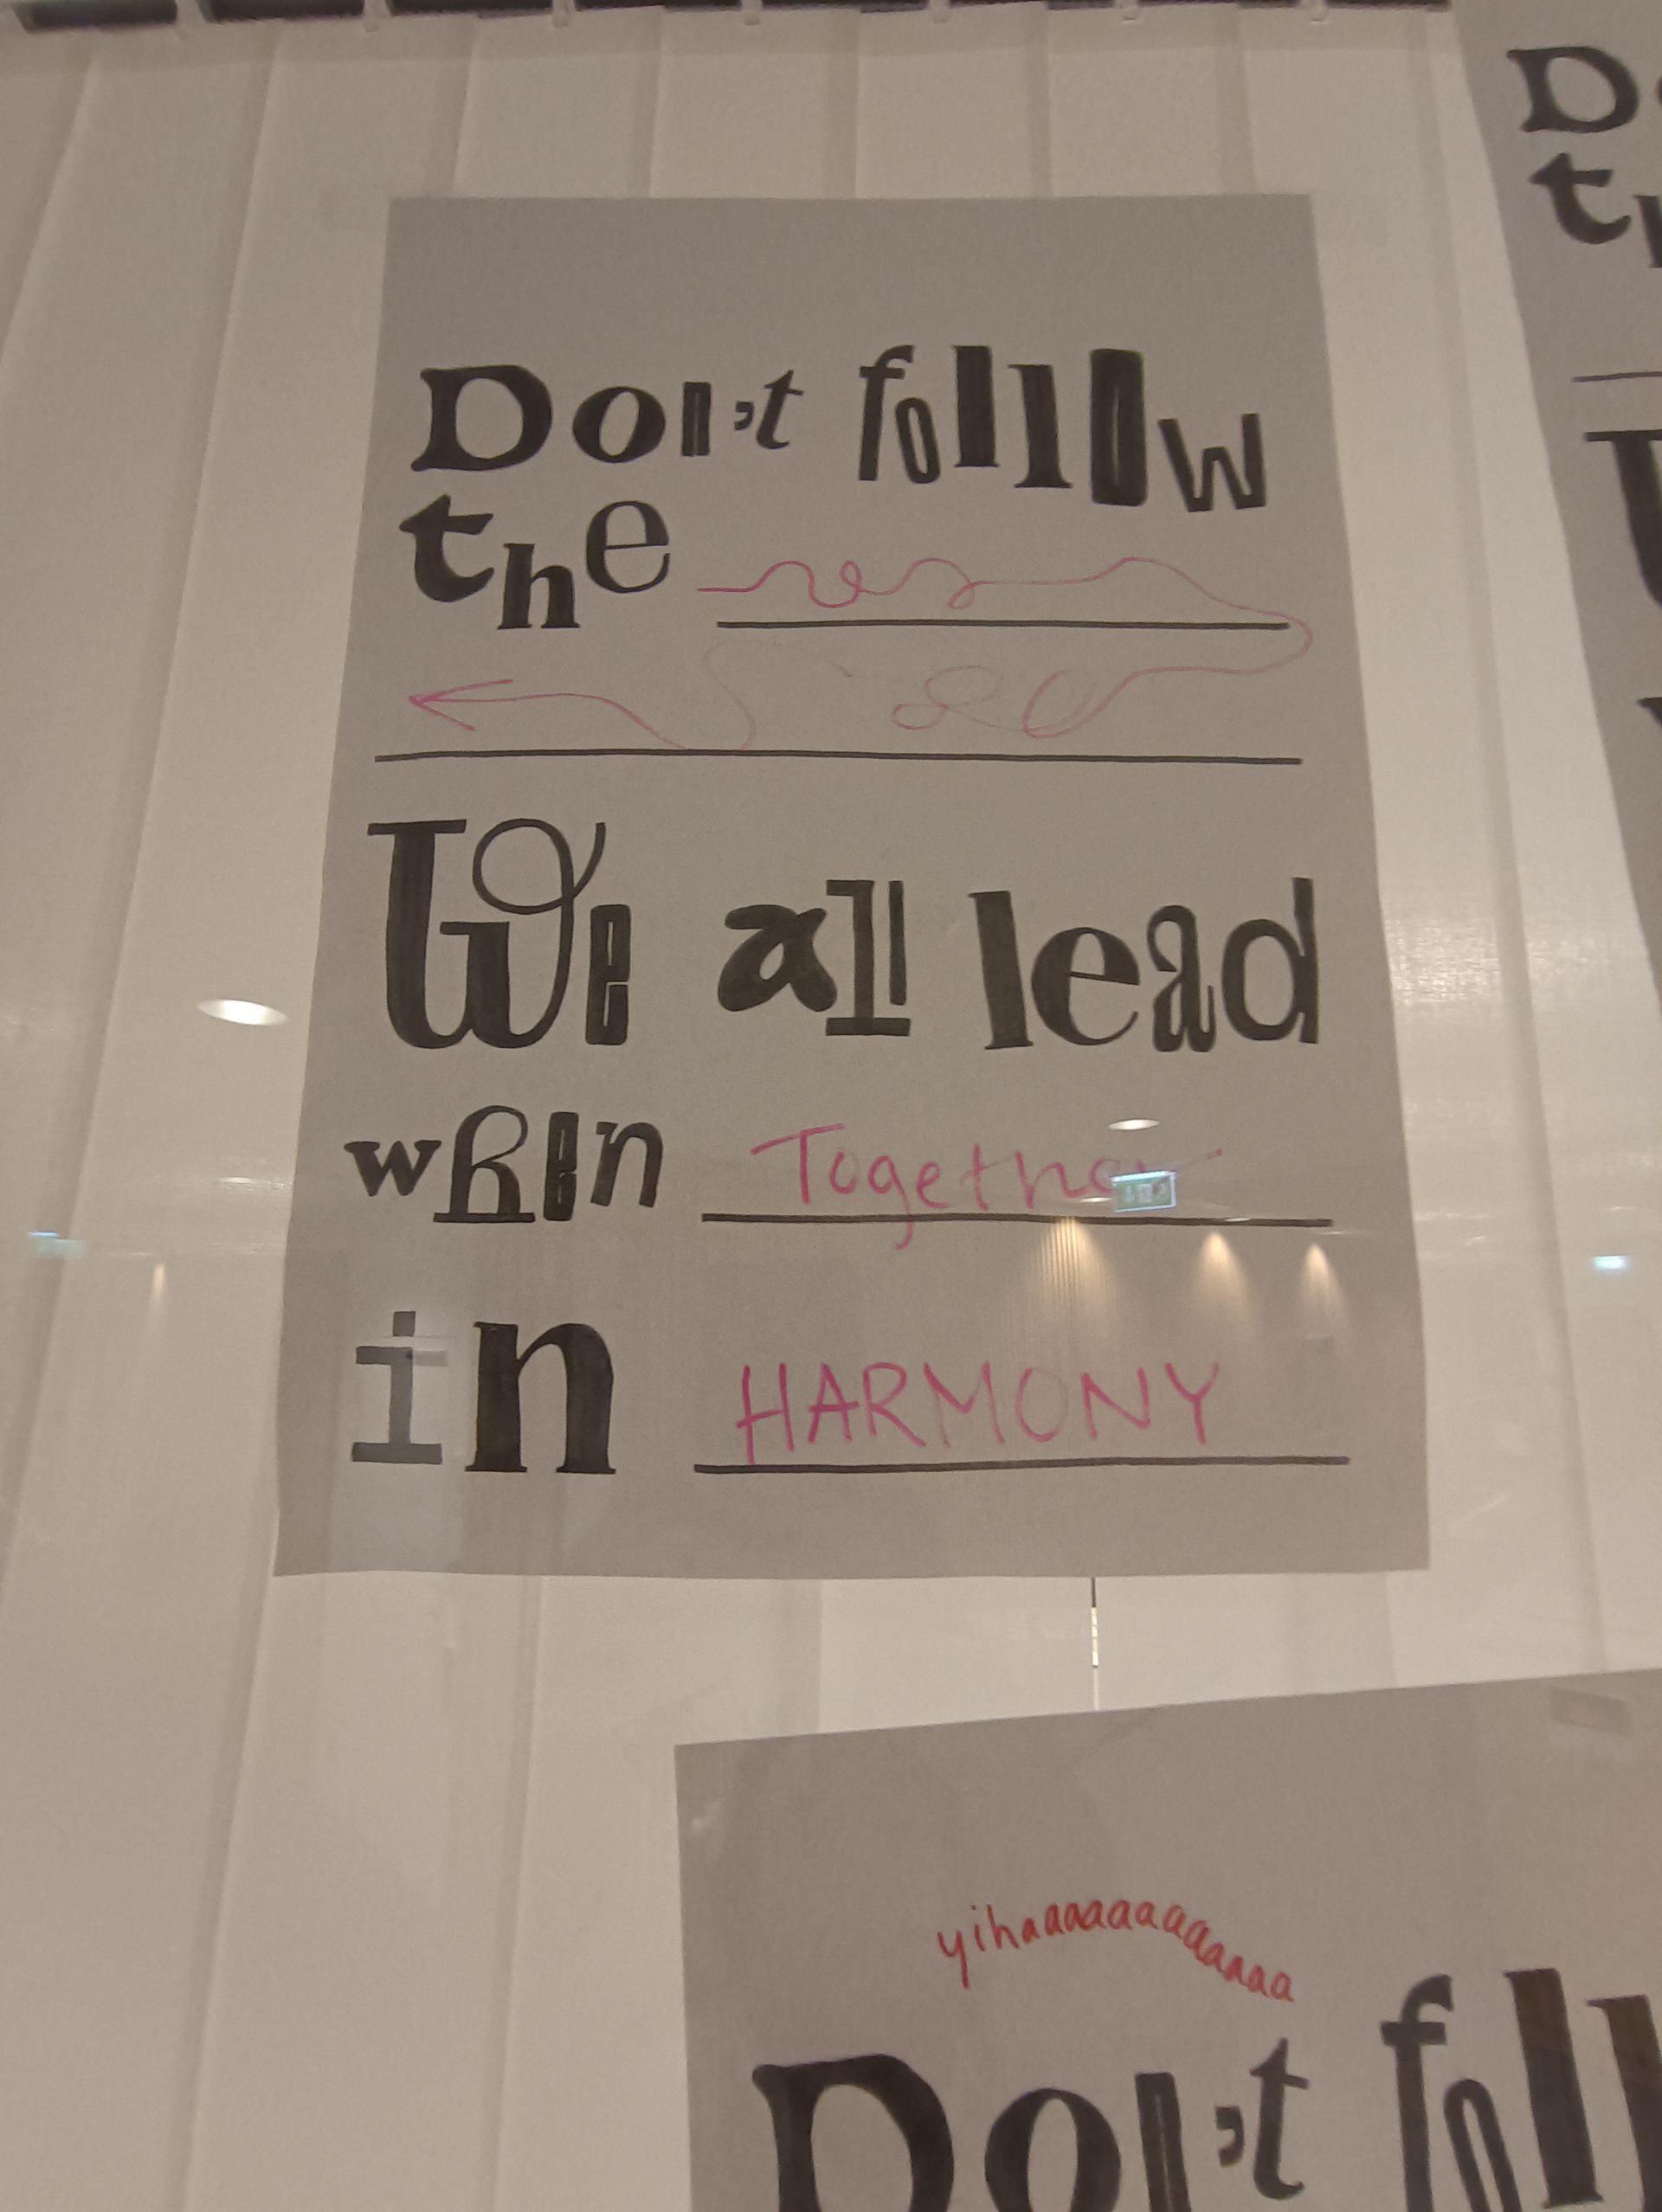 Don't follow
the
We all lead
when Together
in HARMONY
yihaaaaaaaaaaaaa
Don't